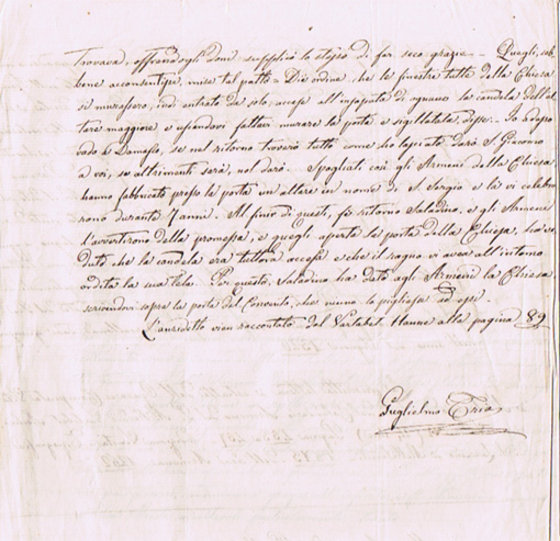 trovava, offrendogli doni supplicò lo stesso di far seco grazia. Quegli, seb-
bene acconsentisse, mise tal patto. Die ordine, che le finestre tutte della Chiesa
si murassero, indi entrato da solo, accese all'insaputa di ognuno la candela dell'al-
tare maggiore e uscendovi fattavi murare la porta e sigillatala, disse. Io adesso
vado a Damasco, se nel ritorno troverò tutto come ho lasciato darò S. Giacomo
a voi, se altrimenti sarà, nol darò. Spogliati così gli Armeni della Chiesa,
hanno fabbricato presso la porta un altare in nome di S. Sergio e là vi celebra-
rono durante 7 anni. Al finir di questi, fè ritorno Saladino, e gli Armeni
l'avvertirono della promessa, e quegli aperta la porta della Chiesa, ha ve-
duto che la candela era tuttora accesa e che il ragno vi avea all'intorno
ordita la sua tela. Per questo, Saladino ha dato agli Armeni la Chiesa
scrivendovi sopra la porta del Convento, che niuno la pigliasse ad essi.
L'anzidetto vien raccontato dal Vartabet Hanne alla pagina 89
Guglielmo